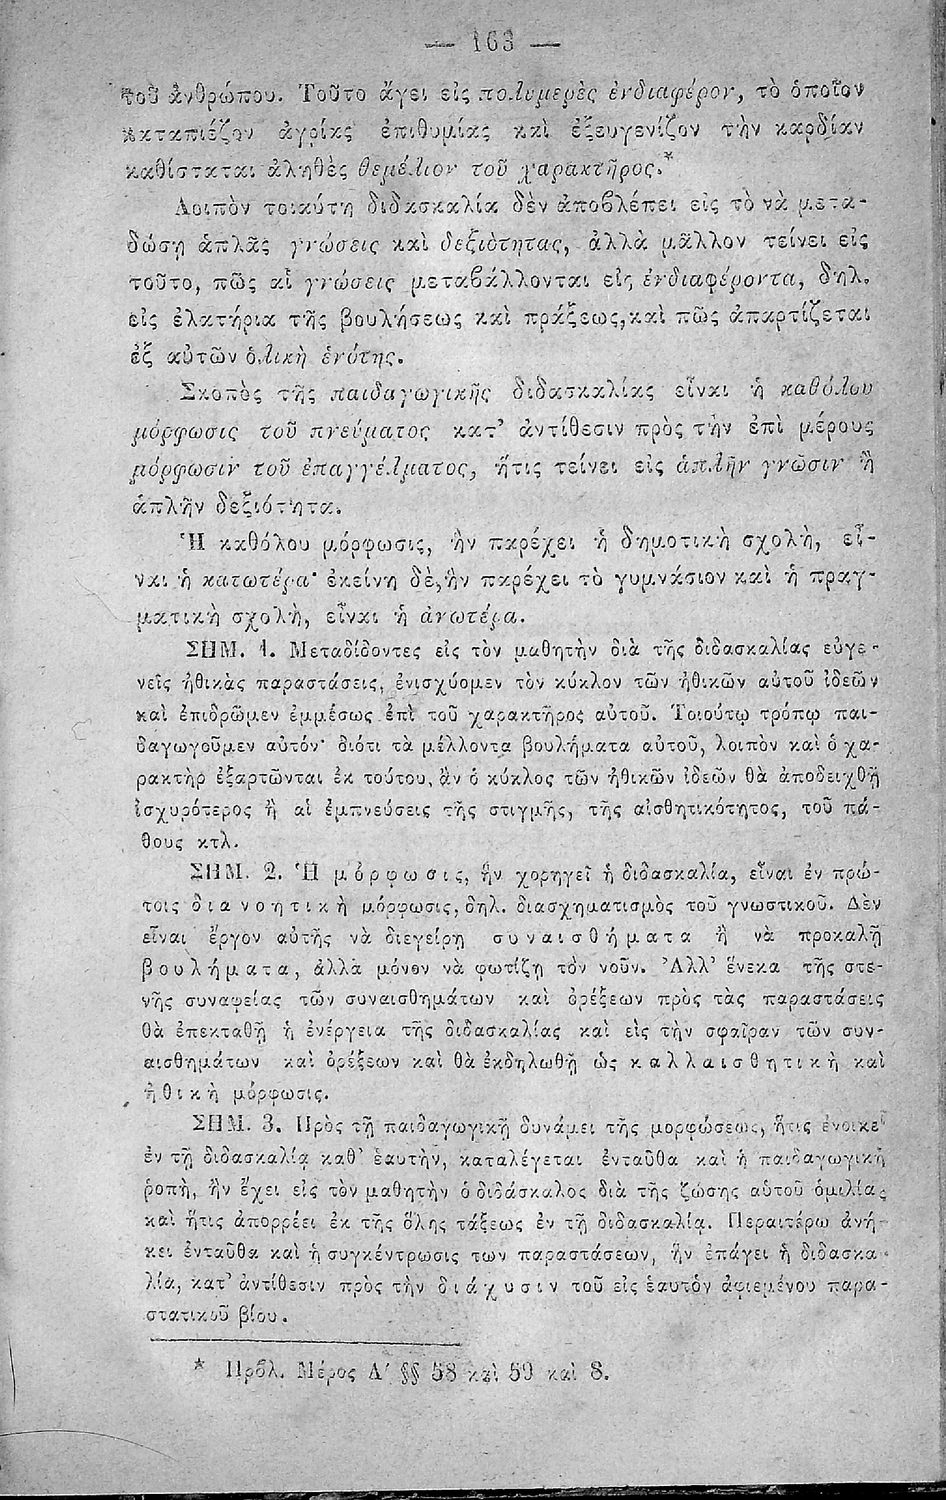 — 163 —
τοῦ ἀνθρώπου. Τοῦτο ἄγει εἰς πολυμερὲς ἐνδιαφέρον, τὸ ὁποῖον
καταπιέζον ἀγρίας ἐπιθυμίας καὶ ἐξευγενίζον τὴν καρδίαν
καθίσταται ἀληθὲς θεμέλιον τοῦ χαρακτῆρος.*
Λοιπὸν τοιαύτη διδασκαλία δὲν ἀποβλέπει εἰς τὸ νὰ μετα-
δώσῃ ἁπλᾶς γνώσεις καὶ δεξιότητας, ἀλλὰ μᾶλλον τείνει εἰς
τοῦτο, πῶς αἱ γνώσεις μεταβάλλονται εἰς ἐνδιαφέροντα, δηλ.
εἰς ἐλατήρια τῆς βουλήσεως καὶ πράξεως, καὶ πῶς ἀπαρτίζεται
ἐξ αὐτῶν ὁλικὴ ἑνότης.
Σκοπὸς τῆς παιδαγωγικῆς διδασκαλίας εἶναι ἡ καθόλου
μόρφωσις τοῦ πνεύματος κατ' ἀντίθεσιν πρὸς τὴν ἐπὶ μέρους
μόρφωσιν τοῦ ἐπαγγέλματος, ἥτις τείνει εἰς ἁπλῆν γνῶσιν ἢ
ἁπλῆν δεξιότητα.
Ἡ καθόλου μόρφωσις, ἣν παρέχει ἡ δημοτικὴ σχολὴ, εἶ-
ναι ἡ κατωτέρα· ἐκείνη δὲ, ἣν παρέχει τὸ γυμνάσιον καὶ ἡ πραγ-
ματικὴ σχολὴ, εἶναι ἡ ἀνωτέρα.
ΣΗΜ. 1. Μεταδίδοντες εἰς τὸν μαθητὴν διὰ τῆς διδασκαλίας εὐγε-
νεῖς ἠθικὰς παραστάσεις, ἐνισχύομεν τὸν κύκλον τῶν ἠθικῶν αὐτοῦ ἰδεῶν
καὶ ἐπιδρῶμεν ἐμμέσως ἐπὶ τοῦ χαρακτῆρος αὐτοῦ. Τοιούτῳ τρόπῳ παι-
δαγωγοῦμεν αὐτόν· διότι τὰ μέλλοντα βουλήματα αὐτοῦ, λοιπὸν καὶ ὁ χα-
ρακτὴρ ἐξαρτῶνται ἐκ τούτου, ἂν ὁ κύκλος τῶν ἠθικῶν ἰδεῶν θὰ ἀποδειχθῇ
ἰσχυρότερος ἢ αἱ ἐμπνεύσεις τῆς στιγμῆς, τῆς αἰσθητικότητος, τοῦ πά-
θους κτλ.
ΣΗΜ. 2. Ἡ μόρφωσις, ἣν χορηγεῖ ἡ διδασκαλία, εἶναι ἐν πρώ-
τοις διανοητικὴ μόρφωσις, δηλ. διασχηματισμὸς τοῦ γνωστικοῦ. Δὲν
εἶναι ἔργον αὐτῆς νὰ διεγείρῃ συναισθήματα ἢ νὰ προκαλῇ
βουλήματα, ἀλλὰ μόνον νὰ φωτίζῃ τὸν νοῦν. Ἀλλ' ἕνεκα τῆς στε-
νῆς συναφείας τῶν συναισθημάτων καὶ ὀρέξεων πρὸς τὰς παραστάσεις
θὰ ἐπεκταθῇ ἡ ἐνέργεια τῆς διδασκαλίας καὶ εἰς τὴν σφαῖραν τῶν συν-
αισθημάτων καὶ ὀρέξεων καὶ θὰ ἐκδηλωθῇ ὡς καλλαισθητικὴ καὶ
ἠθικὴ μόρφωσις.
ΣΗΜ. 3. Πρὸς τῇ παιδαγωγικῇ δυνάμει τῆς μορφώσεως, ἥτις ἐνοικεῖ
ἐν τῇ διδασκαλίᾳ καθ' ἑαυτὴν, καταλέγεται ἐνταῦθα καὶ ἡ παιδαγωγικὴ
ῥοπὴ, ἣν ἔχει εἰς τὸν μαθητὴν ὁ διδάσκαλος διὰ τῆς ζώσης αὑτοῦ ὁμιλίας
καὶ ἥτις ἀπορρέει ἐκ τῆς ὅλης τάξεως ἐν τῇ διδασκαλίᾳ. Περαιτέρω ἀνή-
κει ἐνταῦθα καὶ ἡ συγκέντρωσις των παραστάσεων, ἣν ἐπάγει ἡ διδασκα-
λία, κατ' ἀντίθεσιν πρὸς τὴν διάχυσιν τοῦ εἰς ἑαυτὸν ἀφιεμένου παρα-
στατικοῦ βίου.
* Πρβλ. Μέρος Α΄ §§ 58 καὶ 59 καὶ 8.